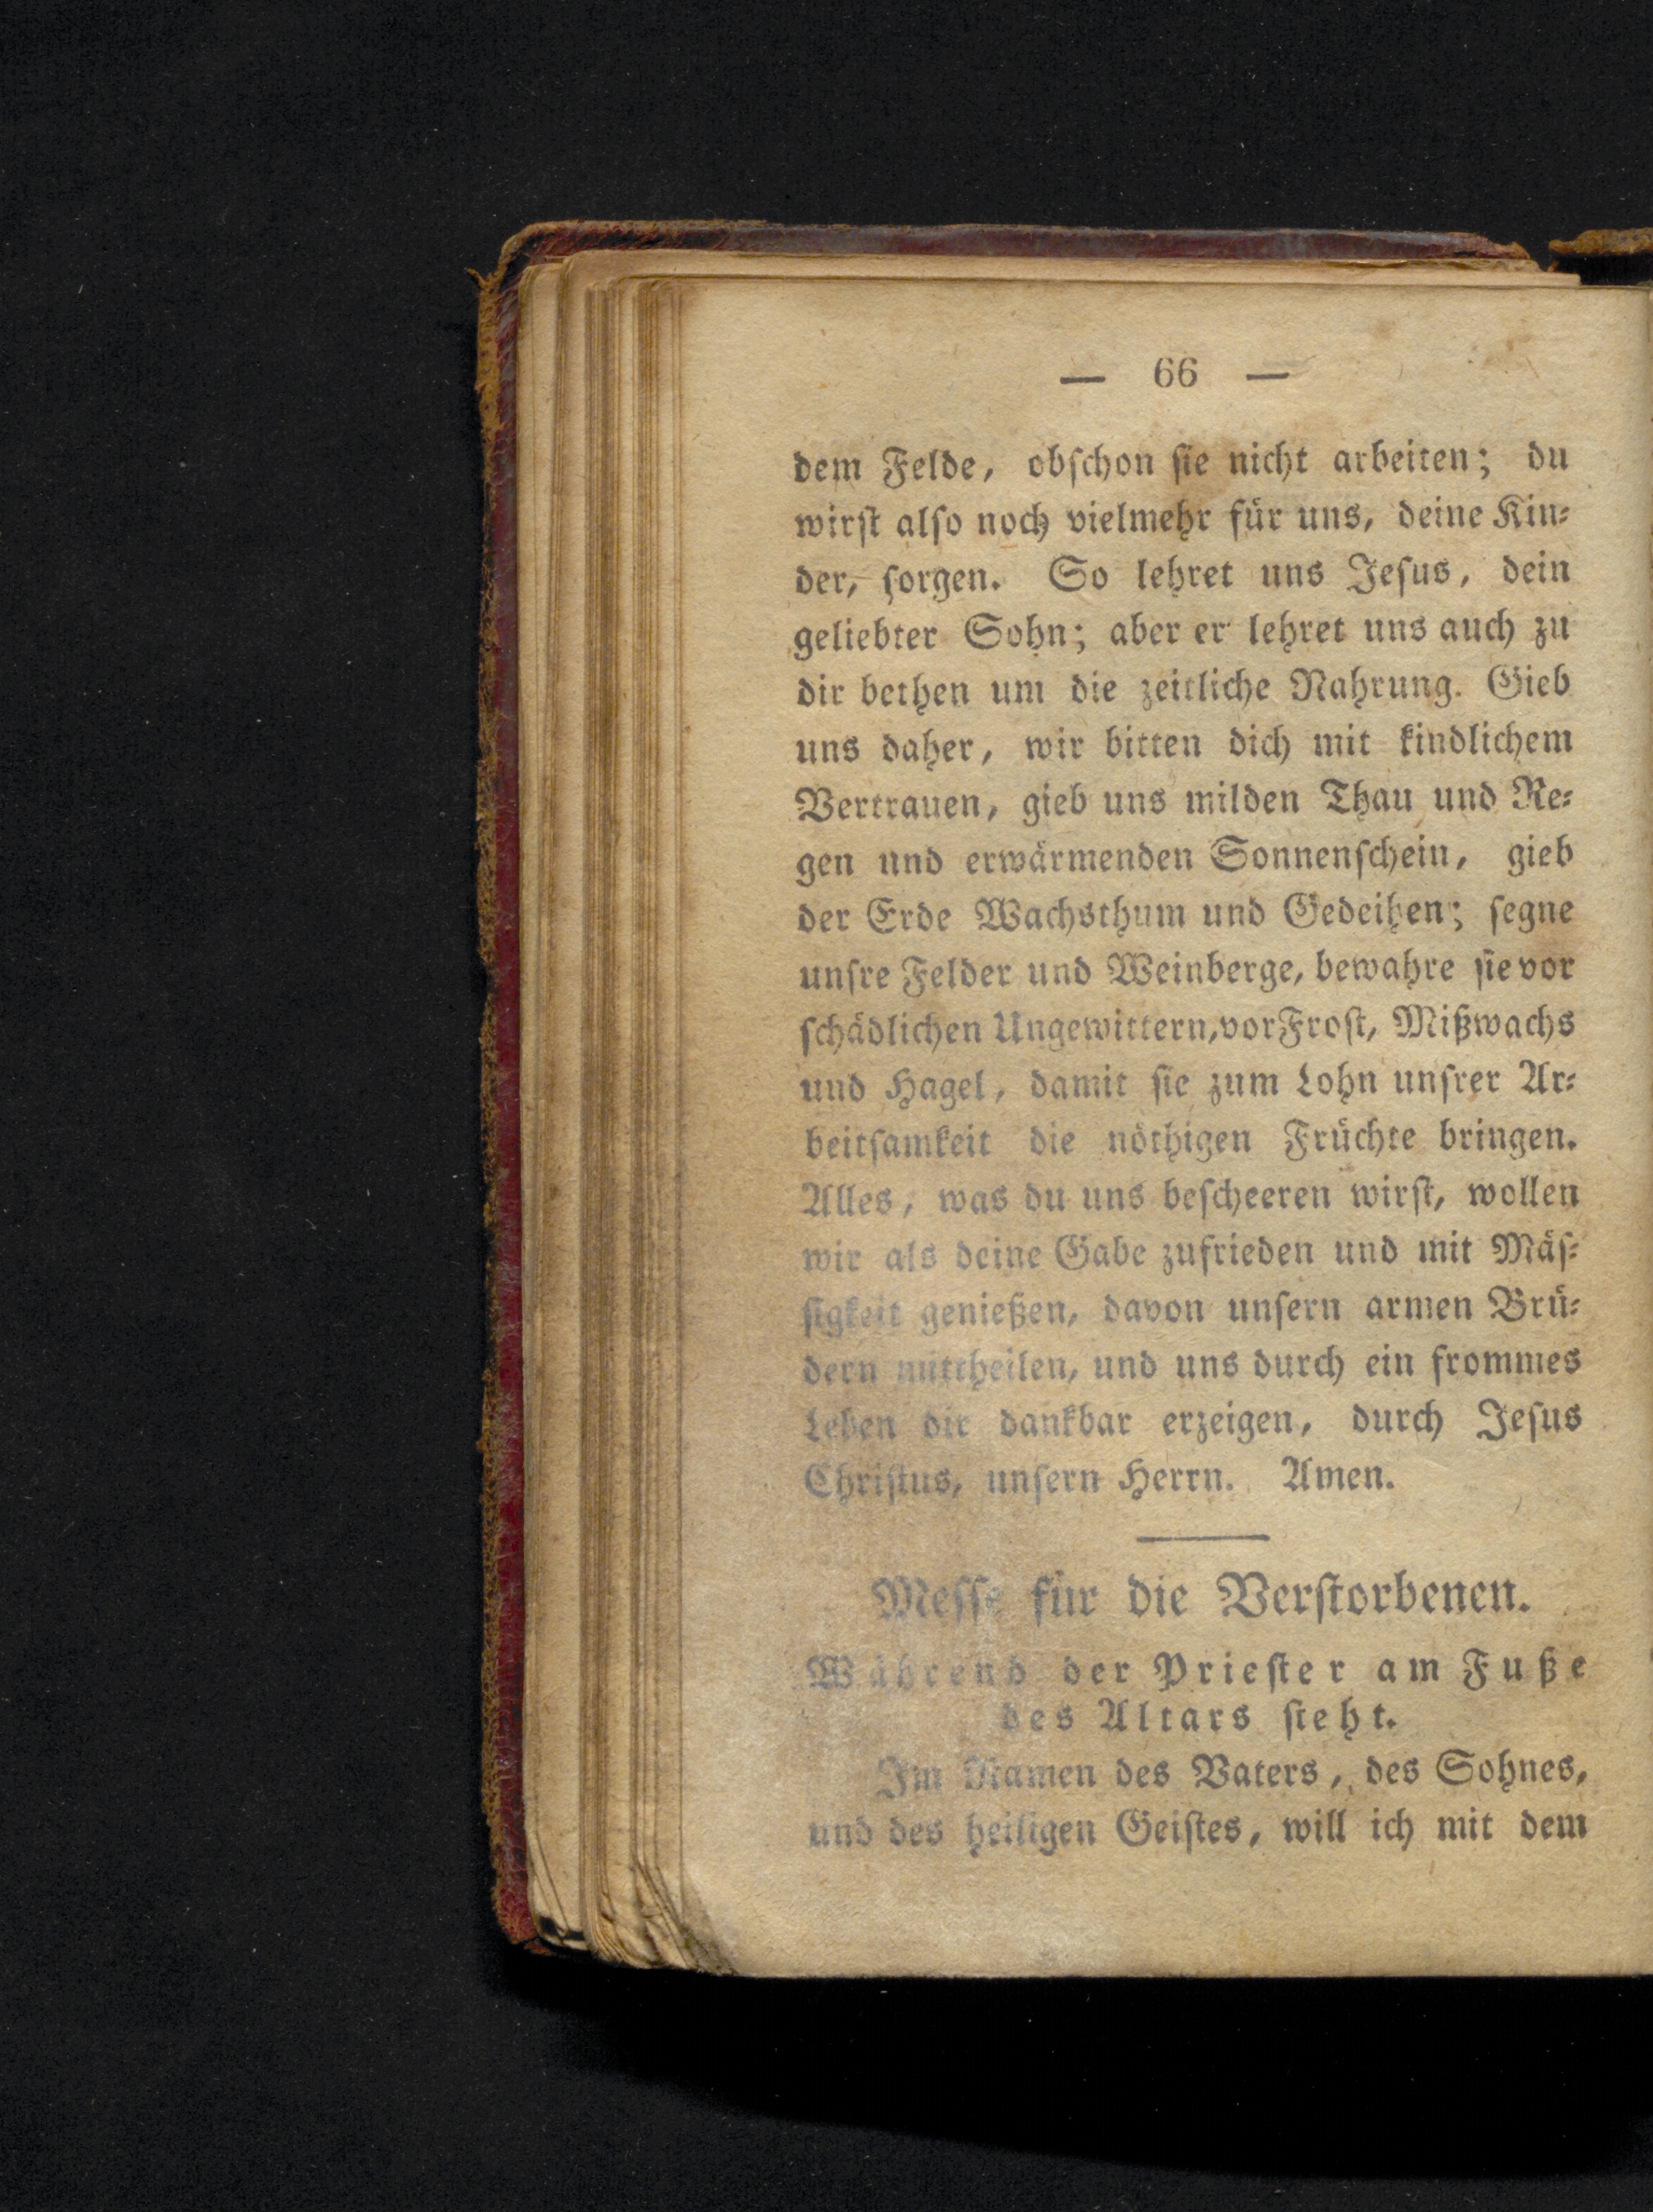 — 66 —
dem Felde, obſchon ſie nicht arbeiten; du
wirſt alſo noch vielmehr für uns, deine Kin⸗
der, ſorgen. So lehret uns Jeſus, dein
geliebter Sohn; aber er lehret uns auch zu
dir bethen um die zeitliche Nahrung. Gieb
uns daher, wir bitten dich mit kindlichem
Vertrauen, gieb uns milden Thau und Re⸗
gen und erwärmenden Sonnenſchein, gieb
der Erde Wachsthum und Gedeihen; ſegne
unſre Felder und Weinberge, bewahre ſie vor
ſchädlichen Ungewittern, vor Froſt, Mißwachs
und Hagel, damit ſie zum Lohn unſrer Ar⸗
beitſamkeit die nöthigen Früchte bringen.
Alles, was du uns beſcheeren wirſt, wollen
wir als deine Gabe zufrieden und mit Mäſ⸗
ſigkeit genießen, davon unſern armen Brü⸗
dern mittheilen, und uns durch ein frommes
Leben dir dankbar erzeigen, durch Jeſus
Chriſtus, unſern Herrn. Amen.
Meſſe für die Verſtorbenen.
Während der Prieſter am Fuße
des Altars ſteht.
Im Namen des Vaters, des Sohnes,
und des heiligen Geiſtes, will ich mit dem